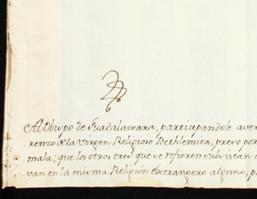 Al Obispo de Guadalaxara, participandole aver
renzo de la Virgen Religioso Bethlemita, preso por
mala; que los otros tres que se refieren subsistan
van en la misma Religion Extrangero alguno, p